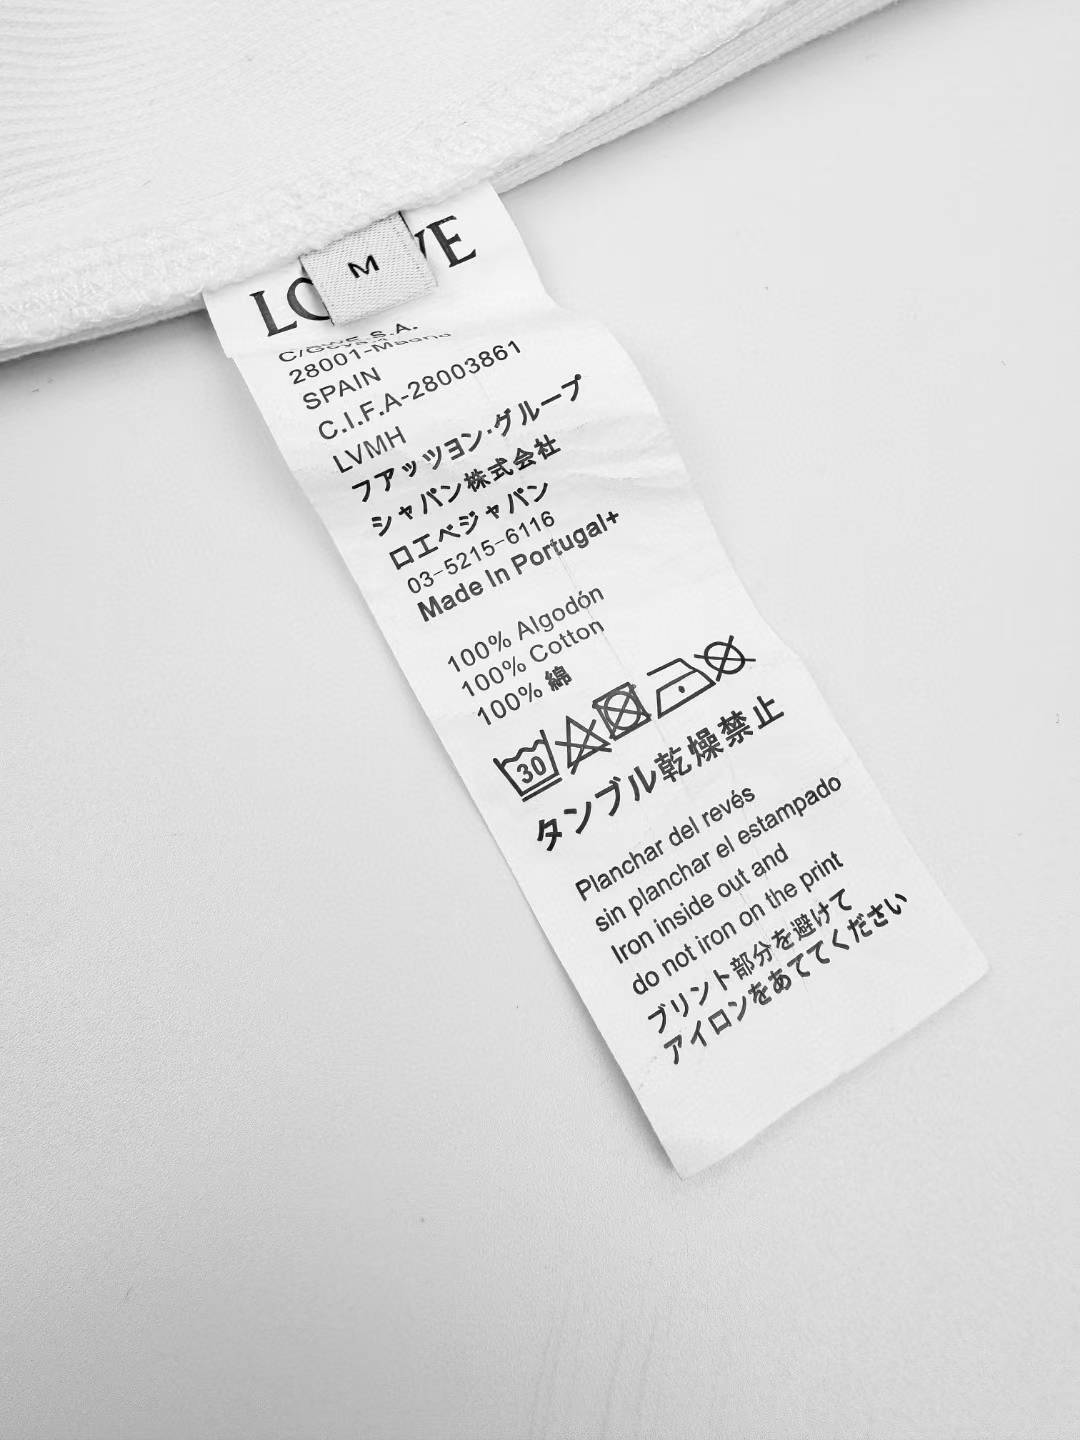 M
LO VE
C/Goya.4
28001-Madrid
SPAIN
C.I.F.A-28003861
LVMH
フアッツヨン·グループ
シャパン株式会社
ロエベジャパン
03-5215-6116
Made In Portugal+
100% Algodón
100% Cotton
100% 綿
30
タンブル乾燥禁止
Planchar del revés
sin planchar el estampado
Iron inside out and
do not iron on the print
プリント部分を避けて
アイロンをあててください